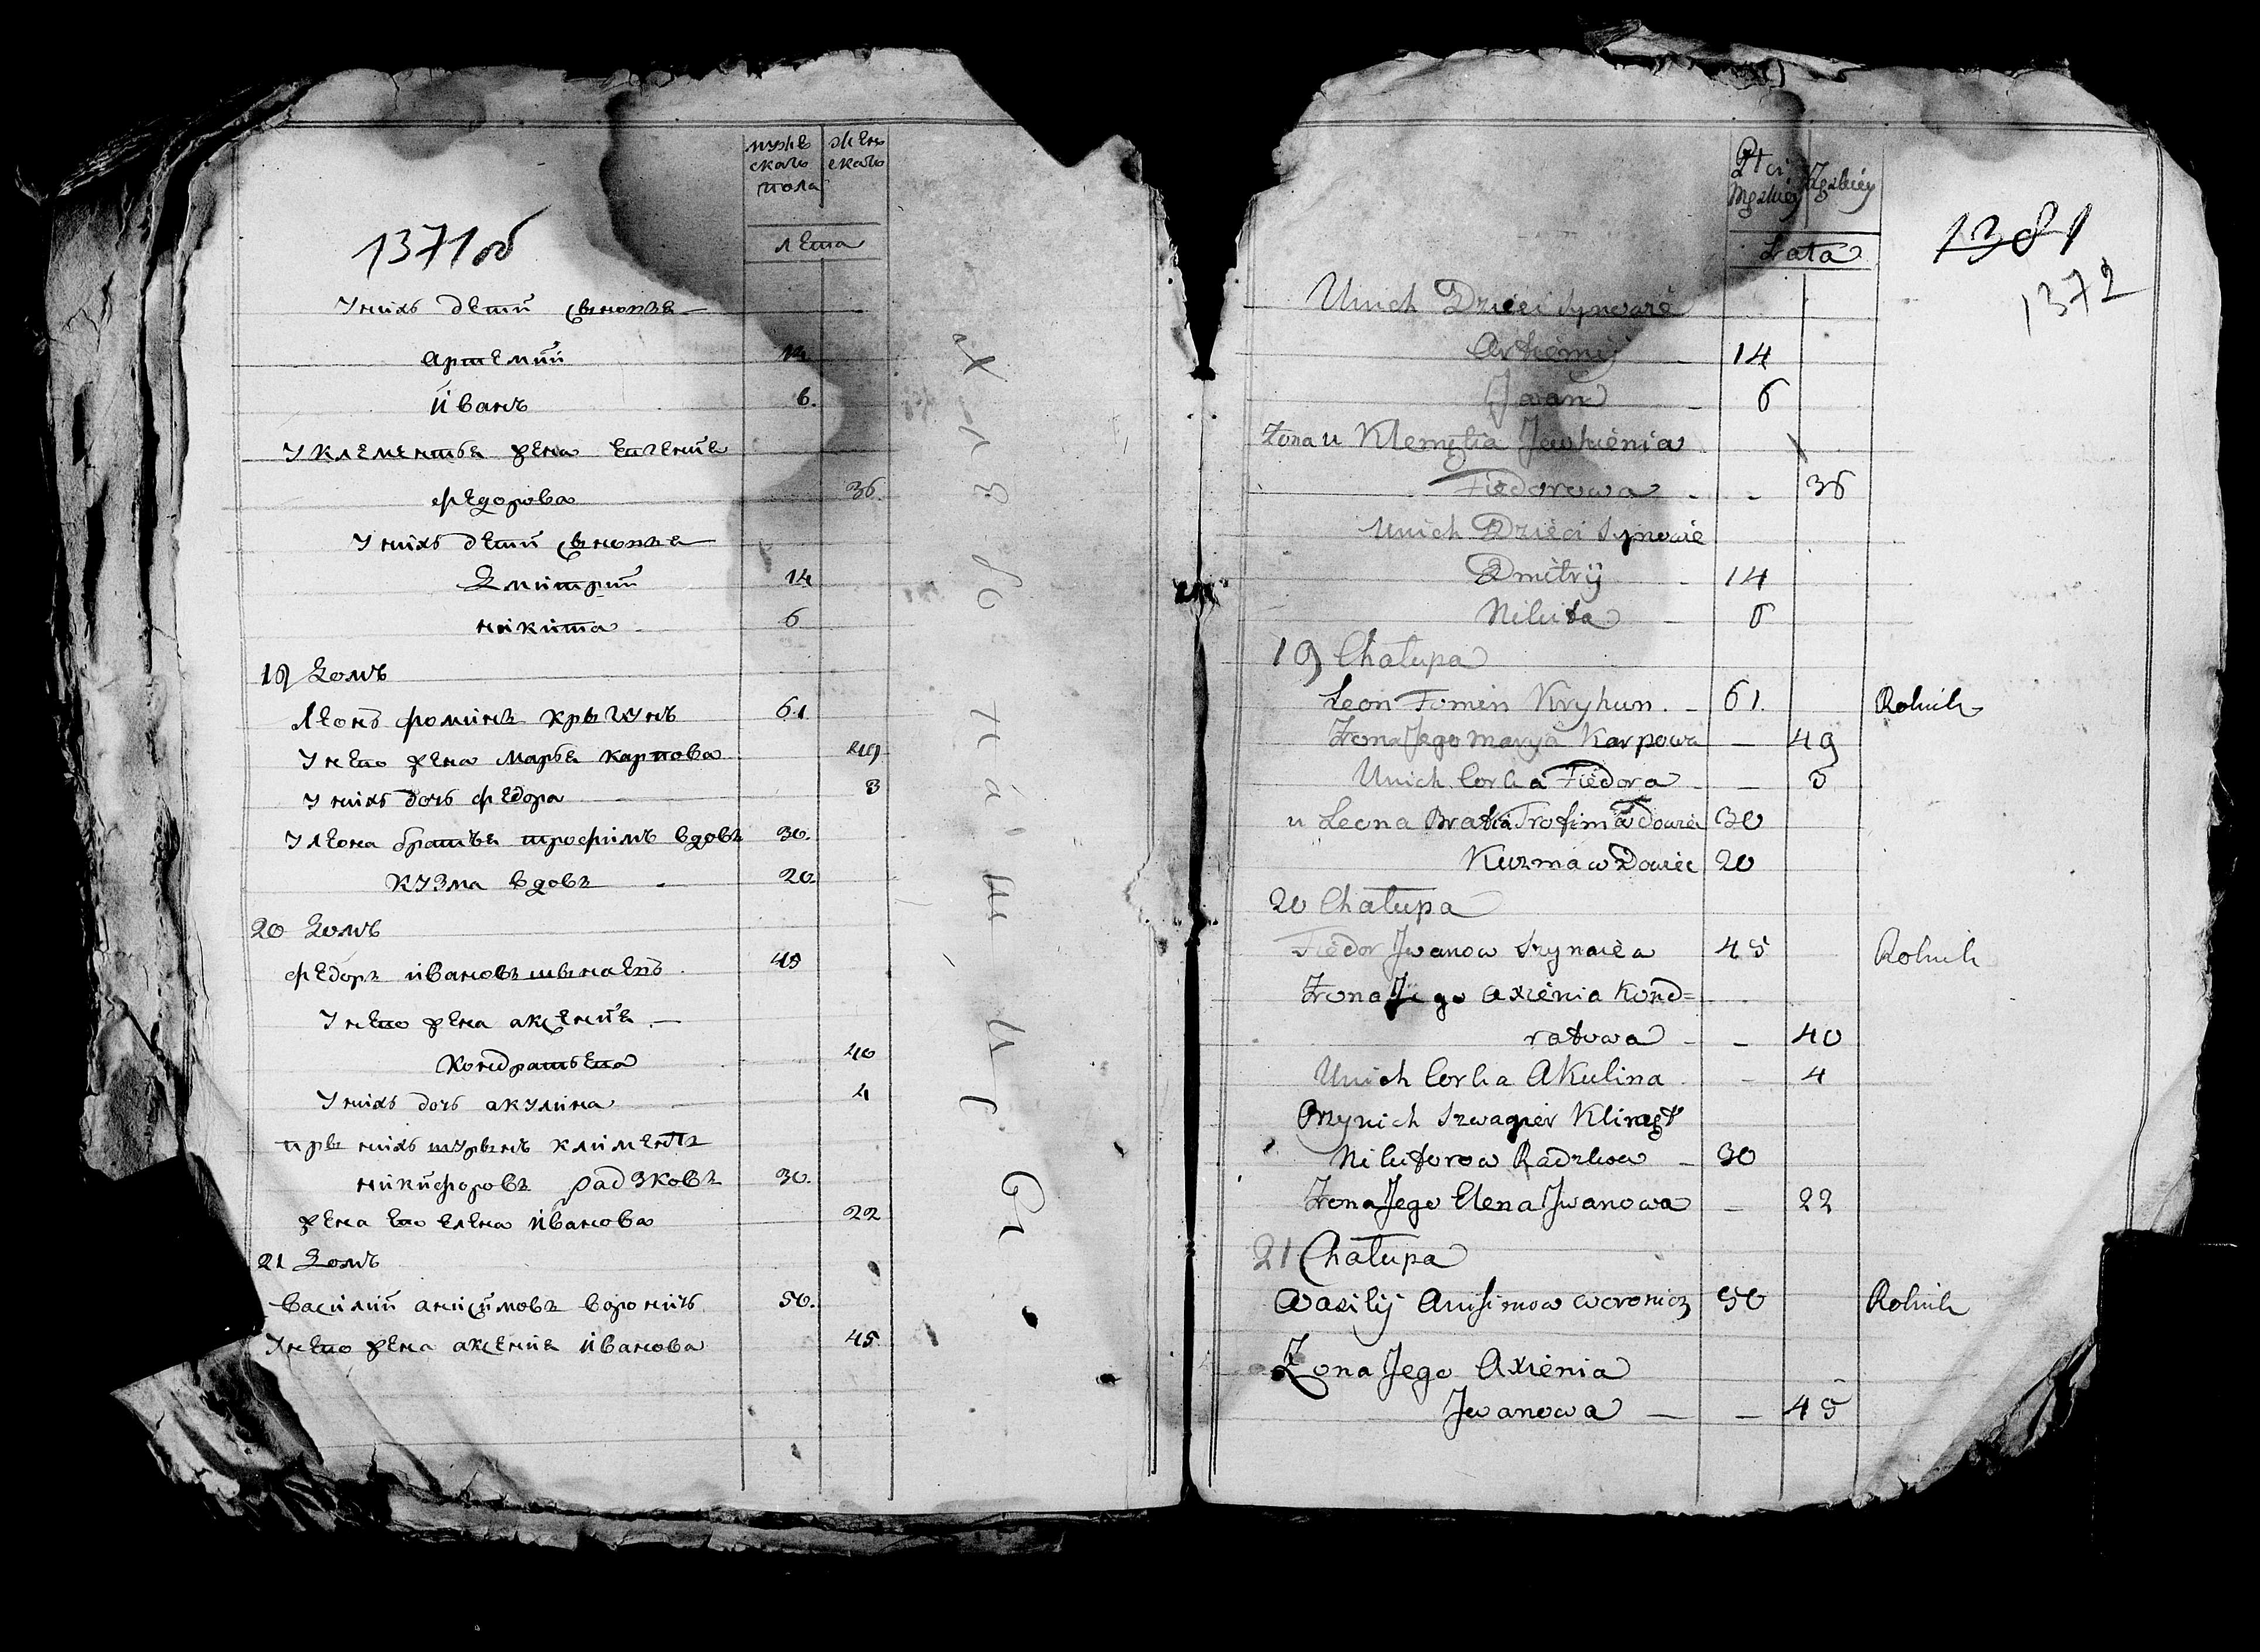 мужескаго пола
женскаго
лета
1371об
У нихъ дети сыновья
артемий 14
иванъ 6.
У клементья жена евгения
федорова 36.
У нихъ дети сыновья
дмитрий 14
никита 6
19 домъ
леонъ фоминъ крыгунъ 61
У него жена марья карпова 49
У нихъ дочь федора 3
У леона братья трофимъ вдовъ 30.
кузма вдовъ 20
20 домъ
федоръ ивановъ 45
У него жена аксения
кондратьева 40
У нихъ дочь акулина 4
при нихъ шуринъ климентъ
никифоровъ радзковъ 30.
жена его елена иванова 22
21 домъ
василий анисимовъ вороничъ 50.
У него жена аксения иванова 45
Płci Męskiey Żeńskiey
Lata
1381
1372
U nich Dzieci synowie
Artiemij 14
Jwan 6
Żona u Klemęta Jewhienia
Fiedorowa - - 36
U nich Dzieci Synowie
Dmitrÿ - 14
Nikita - 6
19 Chałupa
Leon Fomin Kryhun. - 61. Rolnik
Żona Jego Marya Karpowa - 49
U nich Corka Fiedora - - 3
u Leona Bratia Trofim wdowiec 30
Kuzma wdowiec 20
20 Chałupa
Fiedor Jwanow 45 Rolnik
Żona Jego Axienia Kond=
ratowa - - 40
U nich Corka Akulina - 4
Przy nich Szwagier Klimęt
Nikiforow Radzkow - 30
Żona Jego Elena Jwanowa - 22
21 Chałupa
Wasilij Anisimow Woronicz 50 Rolnik
Żona Jego Axienia
Jwanowa - - 45